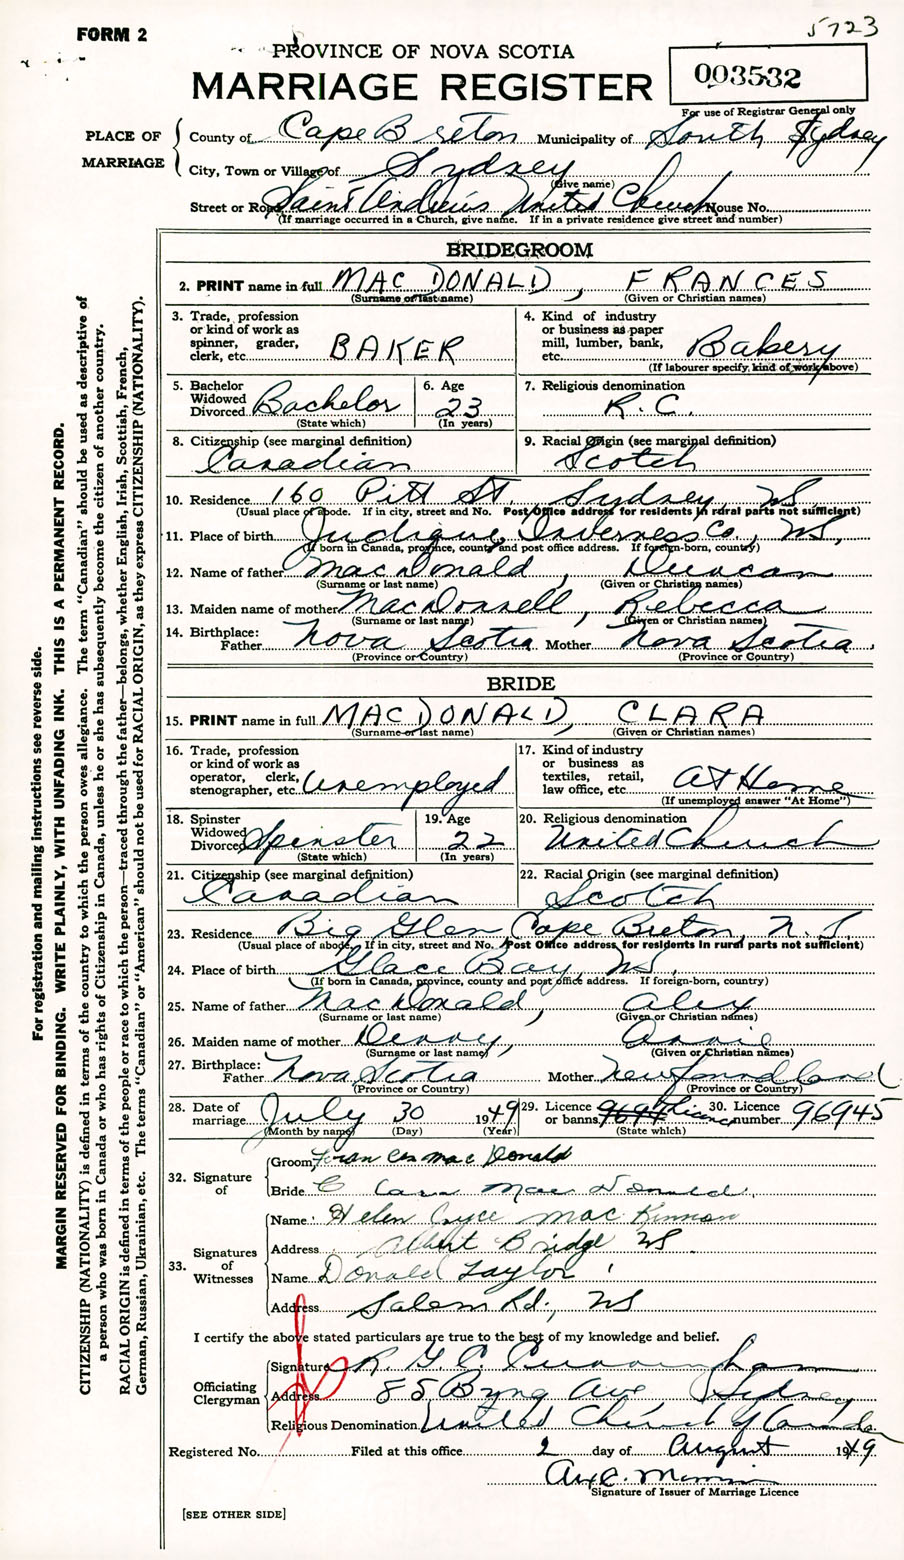 5723
FORM 2
PROVINCE OF NOVA SCOTIA
MARRIAGE REGISTER
003532
For use of Registrar General only
PLACE OF MARRIAGE
County of Cape Breton Municipality of South Sydney
City, Town or Village of Sydney
(Give name)
Street or Road Saint Andrew's United Church House No.
(If marriage occurred in a Church, give name. If in a private residence give street and number)
BRIDEGROOM
2. PRINT name in full MAC DONALD, FRANCES
(Surname or last name) (Given or Christian names)
3. Trade, profession or kind of work as spinner, grader, clerk, etc. BAKER
4. Kind of industry or business as paper mill, lumber, bank, etc. Bakery
(If labourer specify kind of work above)
5. Bachelor Widowed Divorced Bachelor
(State which)
6. Age 23
(In years)
7. Religious denomination R.C.
8. Citizenship (see marginal definition) Canadian
9. Racial Origin (see marginal definition) Scotch
10. Residence 160 Pitt St. Sydney, NS
(Usual place of abode. If in city, street and No. Post Office address for residents in rural parts not sufficient)
11. Place of birth Judique, Inverness Co., NS,
(If born in Canada, province, county and post office address. If foreign-born, country)
12. Name of father MacDonald, Duncan
(Surname or last name) (Given or Christian names)
13. Maiden name of mother MacDonnell, Rebecca
(Surname or last name) (Given or Christian names)
14. Birthplace: Father Nova Scotia Mother Nova Scotia.
(Province or Country) (Province or Country)
BRIDE
15. PRINT name in full MACDONALD, CLARA
(Surname or last name) (Given or Christian names)
16. Trade, profession or kind of work as operator, clerk, stenographer, etc. Unemployed
17. Kind of industry or business as textiles, retail, law office, etc. At Home
(If unemployed answer "At Home")
18. Spinster Widowed Divorced Spinster
(State which)
19. Age 22
(In years)
20. Religious denomination United Church
21. Citizenship (see marginal definition) Canadian
22. Racial Origin (see marginal definition) Scotch
23. Residence Big Glen Cape Breton, N.S.
(Usual place of abode. If in city, street and No. Post Office address for residents in rural parts not sufficient)
24. Place of birth Glace Bay, NS.
(If born in Canada, province, county and post office address. If foreign-born, country)
25. Name of father MacDonald, Alex
(Surname or last name) (Given or Christian names)
26. Maiden name of mother Denny, Annie
(Surname or last name) (Given or Christian names)
27. Birthplace: Father Nova Scotia Mother Newfoundland.
(Province or Country) (Province or Country)
28. Date of marriage July 30 1949
(Month by name) (Day) (Year)
29. Licence or banns 9694 Licence
(State which)
30. Licence number 96945
32. Signature of
Groom Frances MacDonald
Bride Clara MacDonald.
33. Signatures of Witnesses
Name Helen Joyce MacKinnon
Address Albert Bridge NS.
Name Donald Taylor
Address Salem Rd., NS
I certify the above stated particulars are true to the best of my knowledge and belief.
Officiating Clergyman
Signature R. G. C. Cunningham
Address 85 Byng Ave, Sydney
Religious Denomination United Church of Canada.
Registered No. Filed at this office 2 day of August 1949
Signature of Issuer of Marriage Licence
[SEE OTHER SIDE]
For registration and mailing instructions see reverse side.
MARGIN RESERVED FOR BINDING. WRITE PLAINLY, WITH UNFADING INK. THIS IS A PERMANENT RECORD.
CITIZENSHIP (NATIONALITY) is defined in terms of the country to which the person owes allegiance. The term "Canadian" should be used as descriptive of
a person who was born in Canada or who has rights of Citizenship in Canada, unless he or she has subsequently become the citizen of another country.
RACIAL ORIGIN is defined in terms of the people or race to which the person—traced through the father—belongs, whether English, Irish, Scottish, French,
German, Russian, Ukrainian, etc. The terms "Canadian" or "American" should not be used for RACIAL ORIGIN, as they express CITIZENSHIP (NATIONALITY).